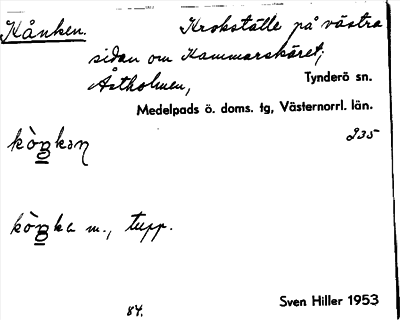 Kånken. Krokställe på västra
sidan om Kammarskäret,
Åstholmen, Tynderö sn.
Medelpads ö. doms. tg, Västernorrl. län.
235
tupp.
84.
Sven Hiller 1953